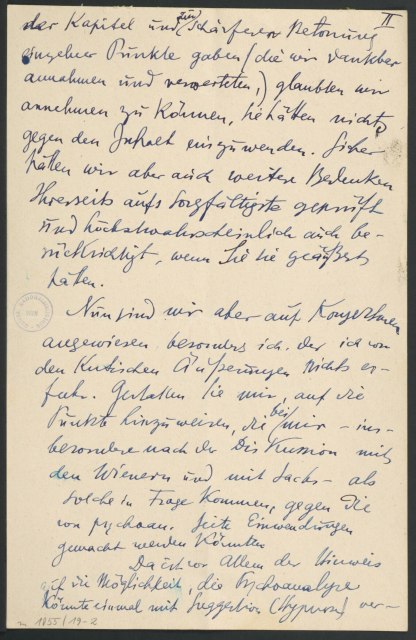 II
der Kapitel und zur schärferen Betonung
einzelner Punkte gaben (die wir dankbar
annahmen und verwerteten,) glaubten wir
annehmen zu können, Sie hätten nichts
gegen den Inhalt einzuwenden. Sicher
hätten wir aber auch weitere Bedenken
Ihrerseits aufs Sorgfältigste geprüft
und höchstwahrscheinlich auch be-
rücksichtigt, wenn Sie sie geäußert
hätten.
Nun sind wir aber auf
angewiesen besonders ich, der ich von
den kritischen Äußerungen nichts er-
fuhr. Gestatten Sie mir, auf die
Punkte hinzuweisen, die bei mir - ins-
besondere nach der Diskussion mit
den Wienern und mit Sachs - als
solche in Frage kommen, gegen die
von psychoan. Seite Einwendungen
gemacht werden könnten
Da ist vor Allem der Hinweis
auf die Möglichkeit, die Psychoanalyse
könnte einmal mit Suggestion (Hypnose) ver-
1855/19-2